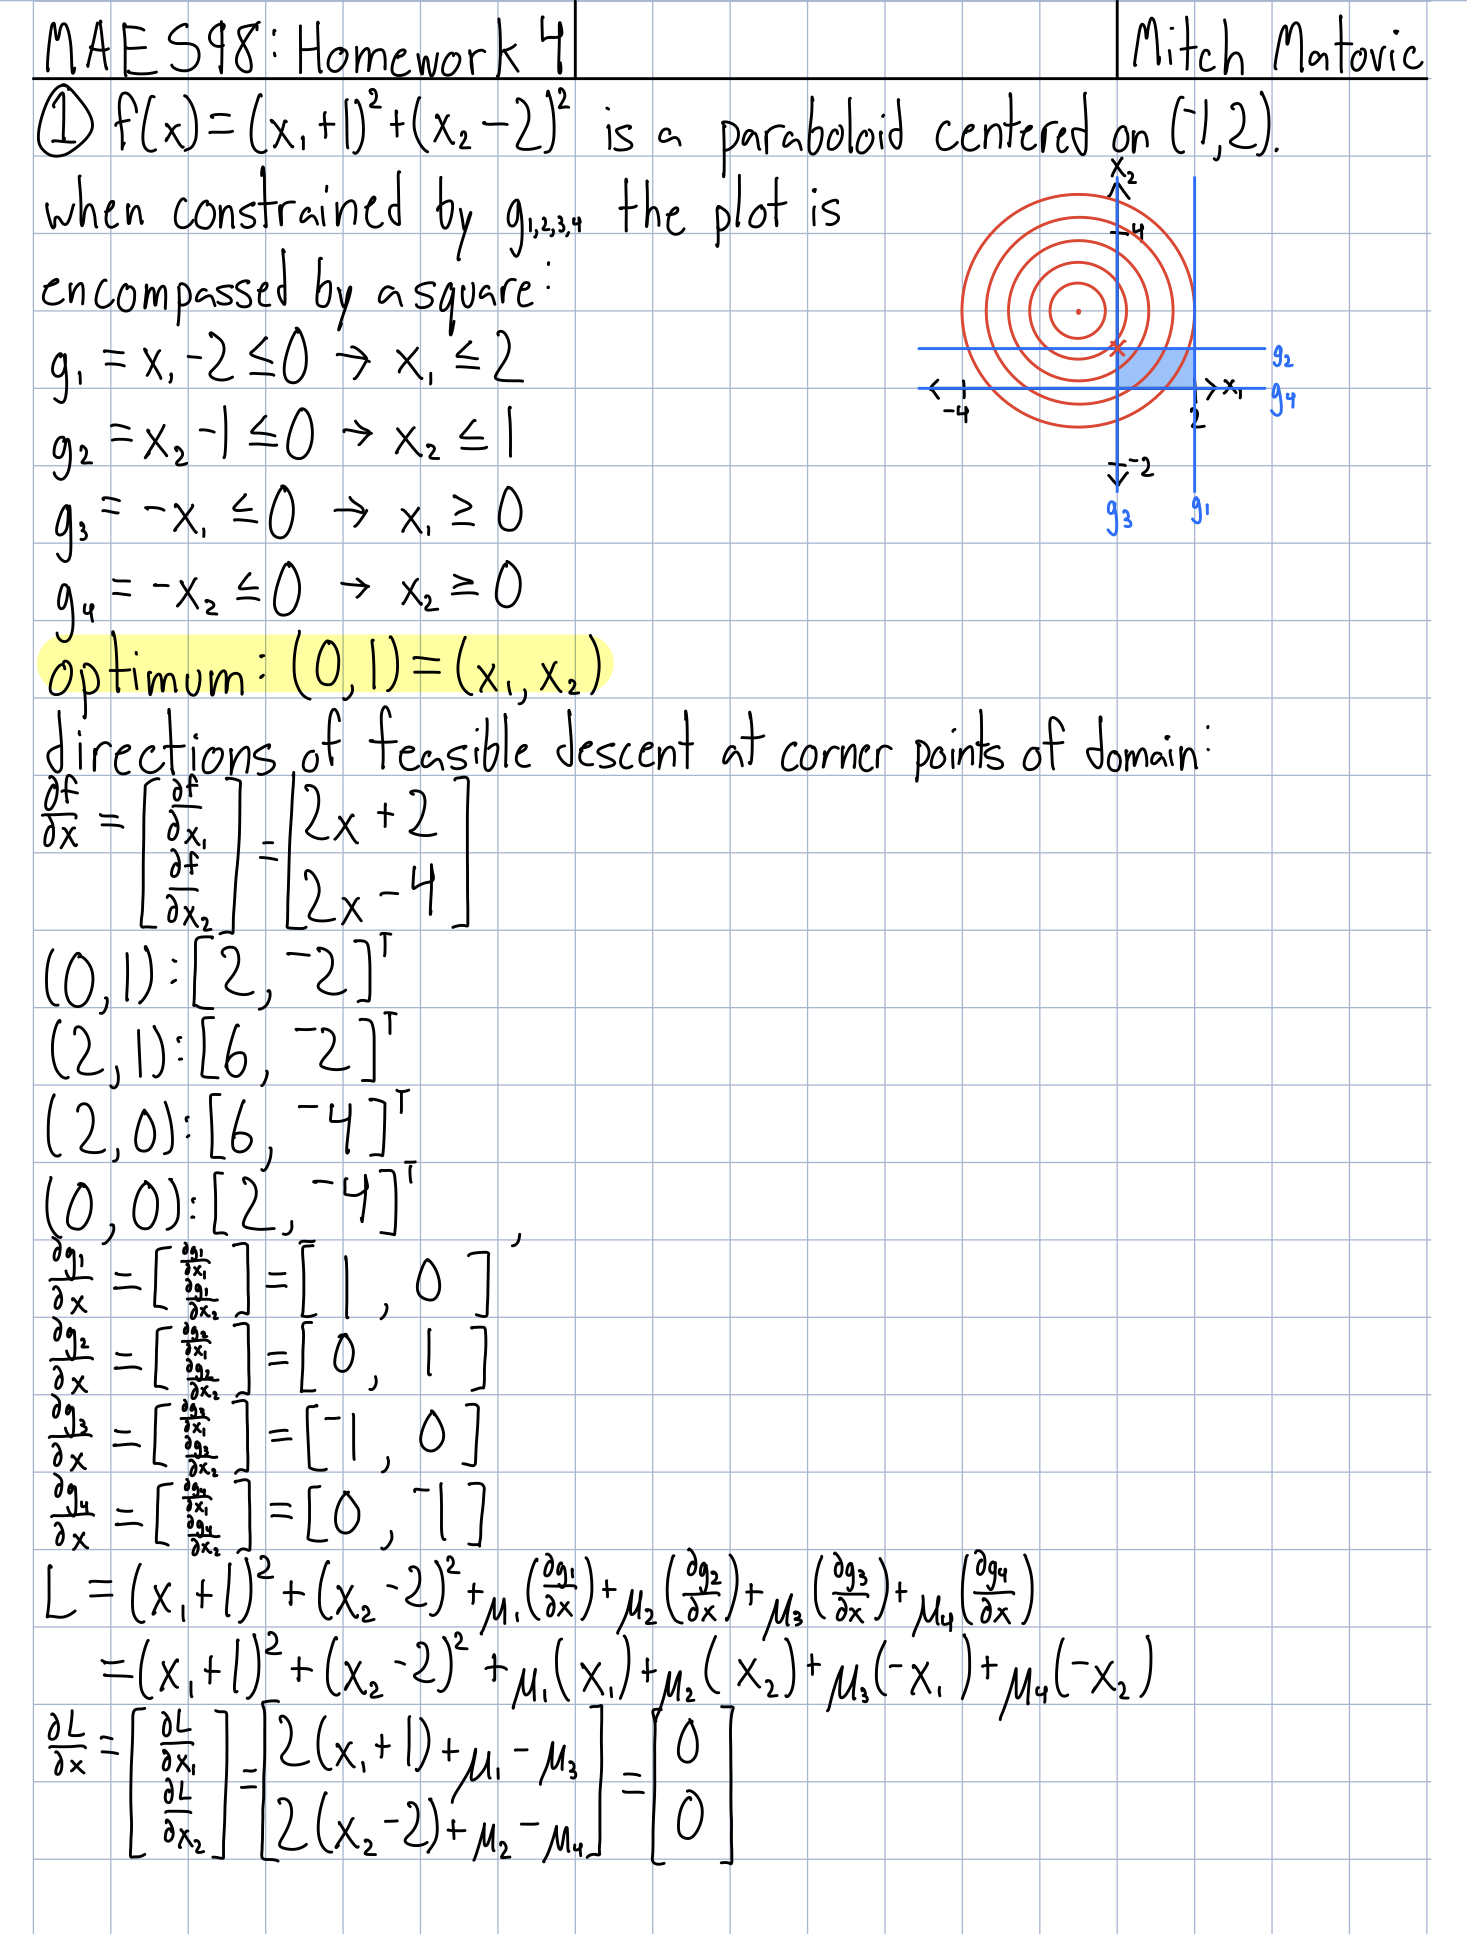 MAE598: Homework 4 Mitch Matovic
① f(x) = (x₁+1)² + (x₂-2)² is a paraboloid centered on (-1,2).
when constrained by g₁,₂,₃,₄ the plot is
encompassed by a square:
g₁ = x₁-2 ≤ 0 → x₁ ≤ 2
g₂ = x₂-1 ≤ 0 → x₂ ≤ 1
g₃ = -x₁ ≤ 0 → x₁ ≥ 0
g₄ = -x₂ ≤ 0 → x₂ ≥ 0
x₂
4
g₂
x₁
g₄
-4
2
-2
g₃ g₁
optimum: (0,1) = (x₁, x₂)
directions of feasible descent at corner points of domain:
∂f/∂x = [∂f/∂x₁ ∂f/∂x₂] = [2x+2 2x-4]
(0,1): [2, -2]ᵀ
(2,1): [6, -2]ᵀ
(2,0): [6, -4]ᵀ
(0,0): [2, -4]ᵀ
∂g₁/∂x = [∂g₁/∂x₁ ∂g₁/∂x₂] = [1, 0]
∂g₂/∂x = [∂g₂/∂x₁ ∂g₂/∂x₂] = [0, 1]
∂g₃/∂x = [∂g₃/∂x₁ ∂g₃/∂x₂] = [-1, 0]
∂g₄/∂x = [∂g₄/∂x₁ ∂g₄/∂x₂] = [0, -1]
L = (x₁+1)² + (x₂-2)² + μ₁(∂g₁/∂x) + μ₂(∂g₂/∂x) + μ₃(∂g₃/∂x) + μ₄(∂g₄/∂x)
= (x₁+1)² + (x₂-2)² + μ₁(x₁) + μ₂(x₂) + μ₃(-x₁) + μ₄(-x₂)
∂L/∂x = [∂L/∂x₁ ∂L/∂x₂] = [2(x₁+1)+μ₁-μ₃ 2(x₂-2)+μ₂-μ₄] = [0 0]